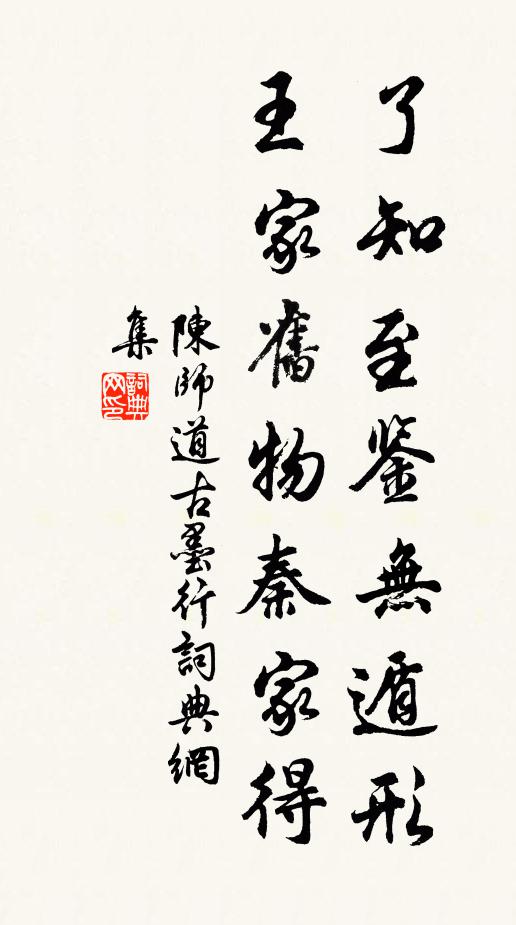 了知至鉴無遁形
王家舊物秦家得
陳師道古墨行詞典網
集
詞典
网印